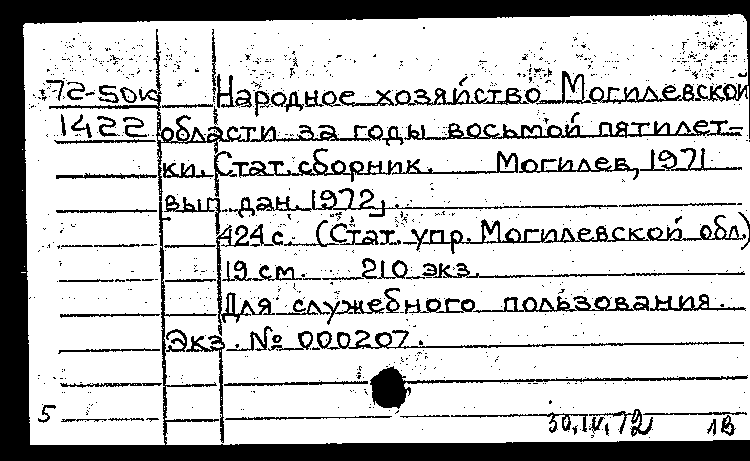 72-50к Народное хозяйство Могилевской
1422 области за годы восьмой пятилет=
ки. Стат. сборник. Могилев, 1971
[вып. дан. 1972].
424 с. (Стат. упр. Могилевской обл.)
19 см. 210 экз.
Для служебного пользования.
Экз. № 000207.
5 30.IV.72 1В